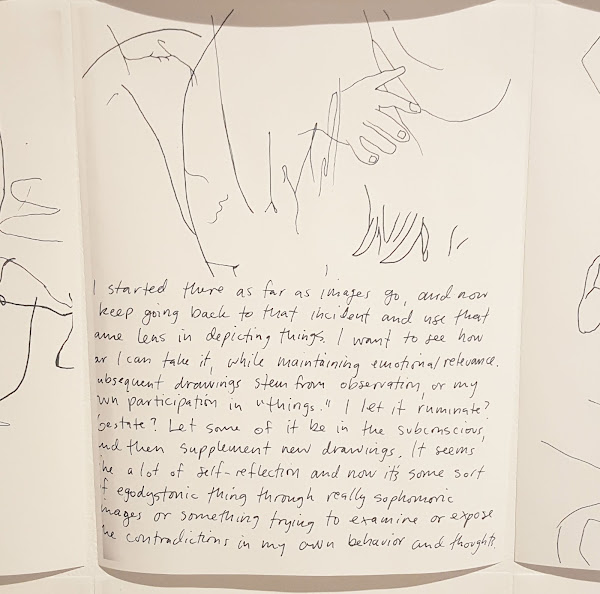 I started there as far as images go, and now
keep going back to that incident and use that
ame lens in depicting things. I want to see how
ar I can take it, while maintaining emotional relevance.
ubsequent drawings stem from observation, or my
wn participation in "things." I let it ruminate?
Gestate? Let some of it be in the subconscious,
nd then supplement new drawings. It seems
ike a lot of self-reflection and now it's some sort
f egodystonic thing through really sophomoric
mages or something trying to examine or expose
he contradictions in my own behavior and thoughts.